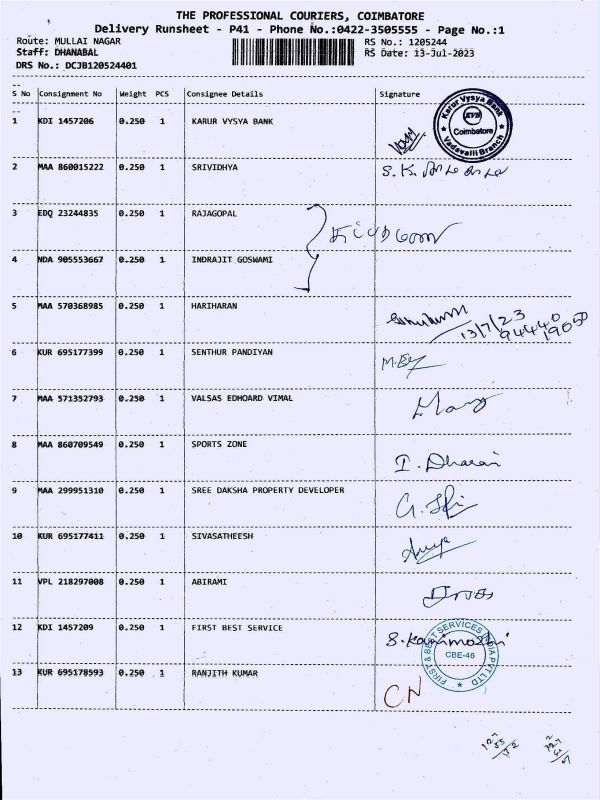 THE PROFESSIONAL COURIERS, COIMBATORE
Delivery Runsheet - P41 - Phone No.:0422-3505555 - Page No.:1
Route: MULLAI NAGAR RS No.: 1205244
Staff: DHANABAL RS Date: 13-Jul-2023
DRS No.: DCJB120524401
S No Consignment No Weight PCS Consignee Details Signature
1 KDI 1457206 0.250 1 KARUR VYSYA BANK
Karur Vysya Bank
KVB
Coimbatore
Vadavalli Branch
2 MAA 860015222 0.250 1 SRIVIDHYA S.K.
3 EDQ 23244835 0.250 1 RAJAGOPAL
4 NDA 905553667 0.250 1 INDRAJIT GOSWAMI
5 MAA 570368985 0.250 1 HARIHARAN
13/7/23
94440
19050
6 KUR 695177399 0.250 1 SENTHUR PANDIYAN
7 MAA 571352793 0.250 1 VALSAS EDHOARD VIMAL
8 MAA 860709549 0.250 1 SPORTS ZONE I. Dharani
9 MAA 299951310 0.250 1 SREE DAKSHA PROPERTY DEVELOPER
10 KUR 695177411 0.250 1 SIVASATHEESH
11 VPL 218297008 0.250 1 ABIRAMI
12 KDI 1457209 0.250 1 FIRST BEST SERVICE S. Kanimozhi
FIRST & BEST SERVICES INDIA PVT LTD
CBE-46
13 KUR 695178593 0.250 1 RANJITH KUMAR CN